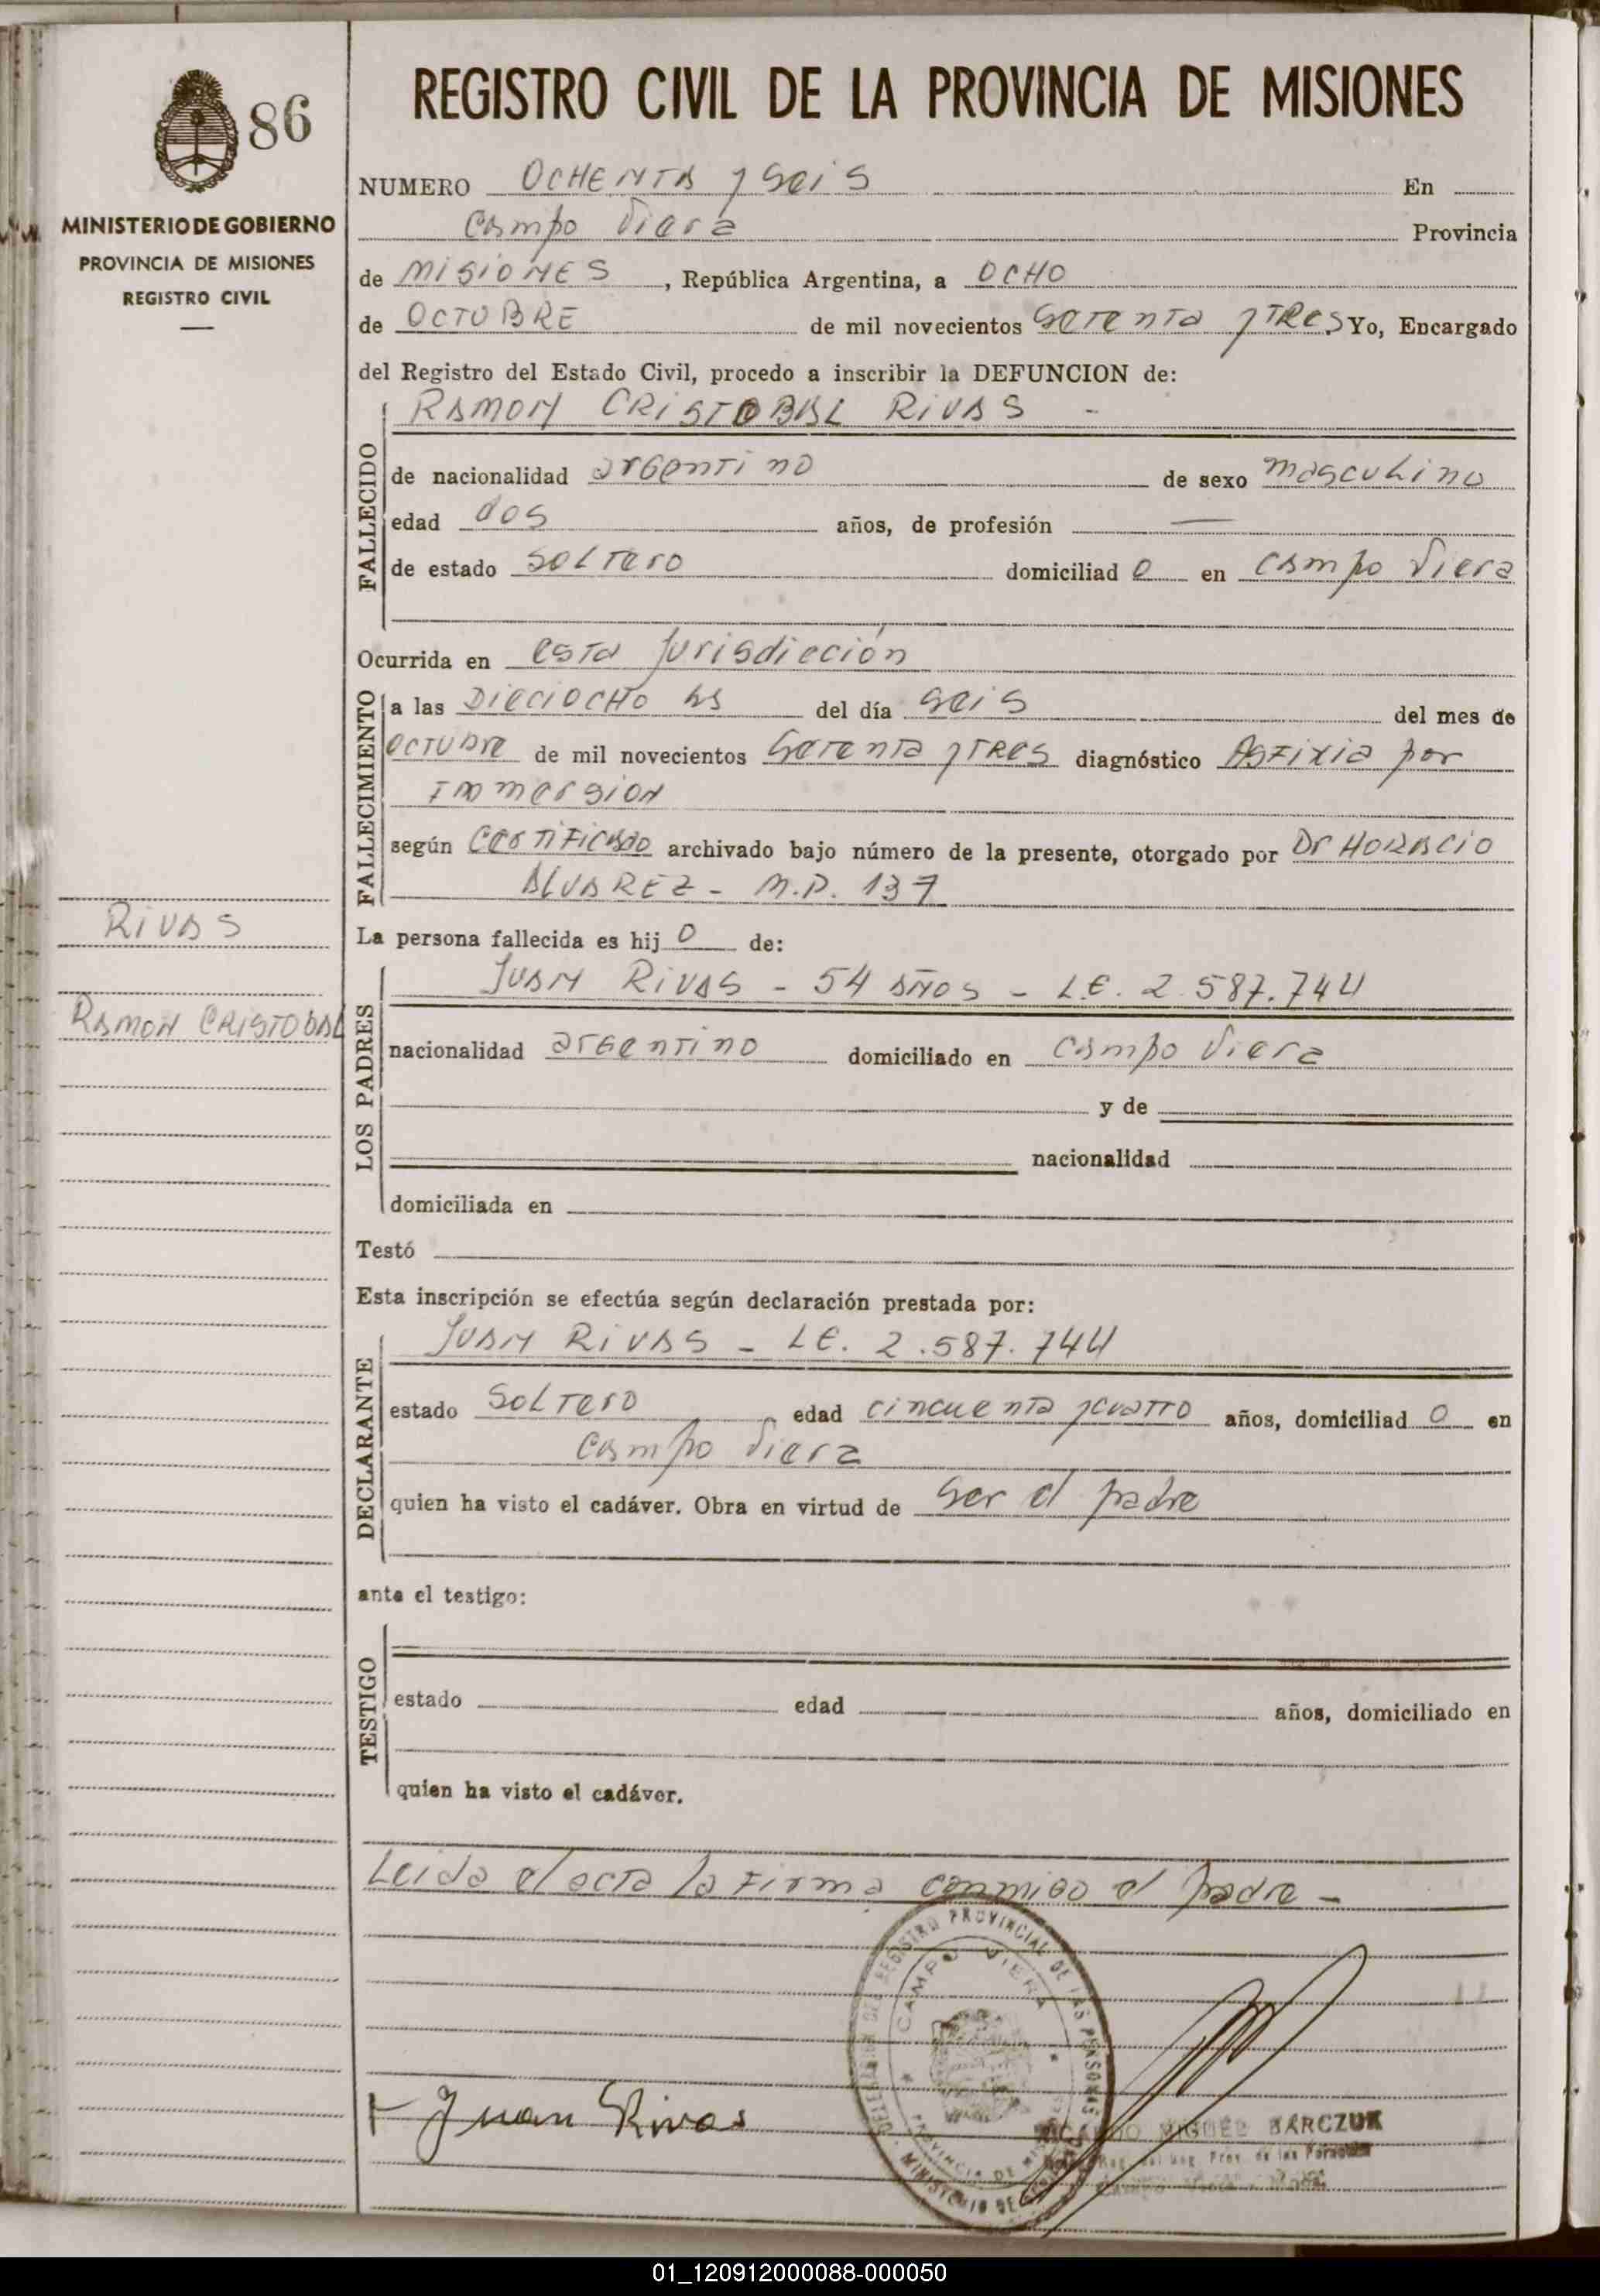 86
MINISTERIO DE GOBIERNO
PROVINCIA DE MISIONES
REGISTRO CIVIL
RIVAS
RAMON CRISTOBAL
REGISTRO CIVIL DE LA PROVINCIA DE MISIONES
NUMERO OCHENTA y SeiS En
Campo Viera Provincia
de MISIONES, República Argentina, a OCHO
de OCTUBRE de mil novecientos SeTenTa y TReS Yo, Encargado
del Registro del Estado Civil, procedo a inscribir la DEFUNCION de:
RAMON CRISTOBAL RIVAS -
FALLECIDO
de nacionalidad argentino de sexo masculino
edad dos años, de profesión —
de estado SOLTero domiciliad o en Campo Viera
Ocurrida en esta Jurisdicción
FALLECIMIENTO
a las DIECIOCHO hs del día seis del mes de
octubre de mil novecientos SeTenTa y TRES diagnóstico Asfixia por
Inmersion
según Certificado archivado bajo número de la presente, otorgado por Dr HORACIO
ALVAREZ - M.P. 137
La persona fallecida es hij o de:
LOS PADRES
JUAN RIVAS - 54 AÑOS - L.E. 2.587.744
nacionalidad argentino domiciliado en Campo Viera
y de
nacionalidad
domiciliada en
Testó
Esta inscripción se efectúa según declaración prestada por:
DECLARANTE
JUAN RIVAS - LE. 2.587.744
estado SOLTero, edad cincuenta y cuatro años, domiciliad o en
Campo Viera
quien ha visto el cadáver. Obra en virtud de Ser el padre
ante el testigo:
TESTIGO
estado edad años, domiciliado en
quien ha visto el cadáver.
Leida el acta la Firma conmigo el padre -
REGISTRO PROVINCIAL DE LAS PERSONAS
CAMPO VIERA
PROVINCIA DE
MINISTERIO DE
Juan Rivas
MIGUEL BARCZUK
01_120912000088-000050